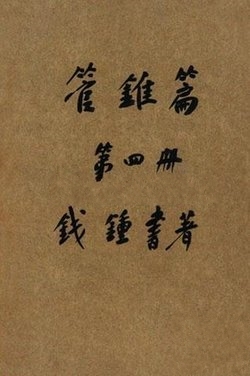 管錐篇
第四册
钱鍾書著